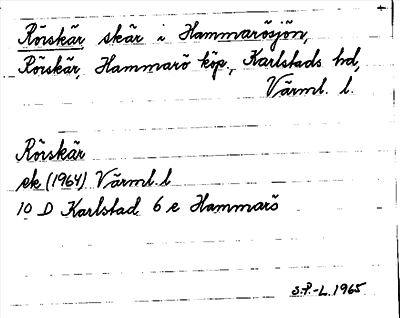 Rörskär skär i Hammarösjön,
Rörskär, Hammarö köp., Karlstads hd,
Värml. l.
Rörskär
ek (1964) Värml. l
10 D Karlstad 6 e Hammarö
S.P.-L. 1965